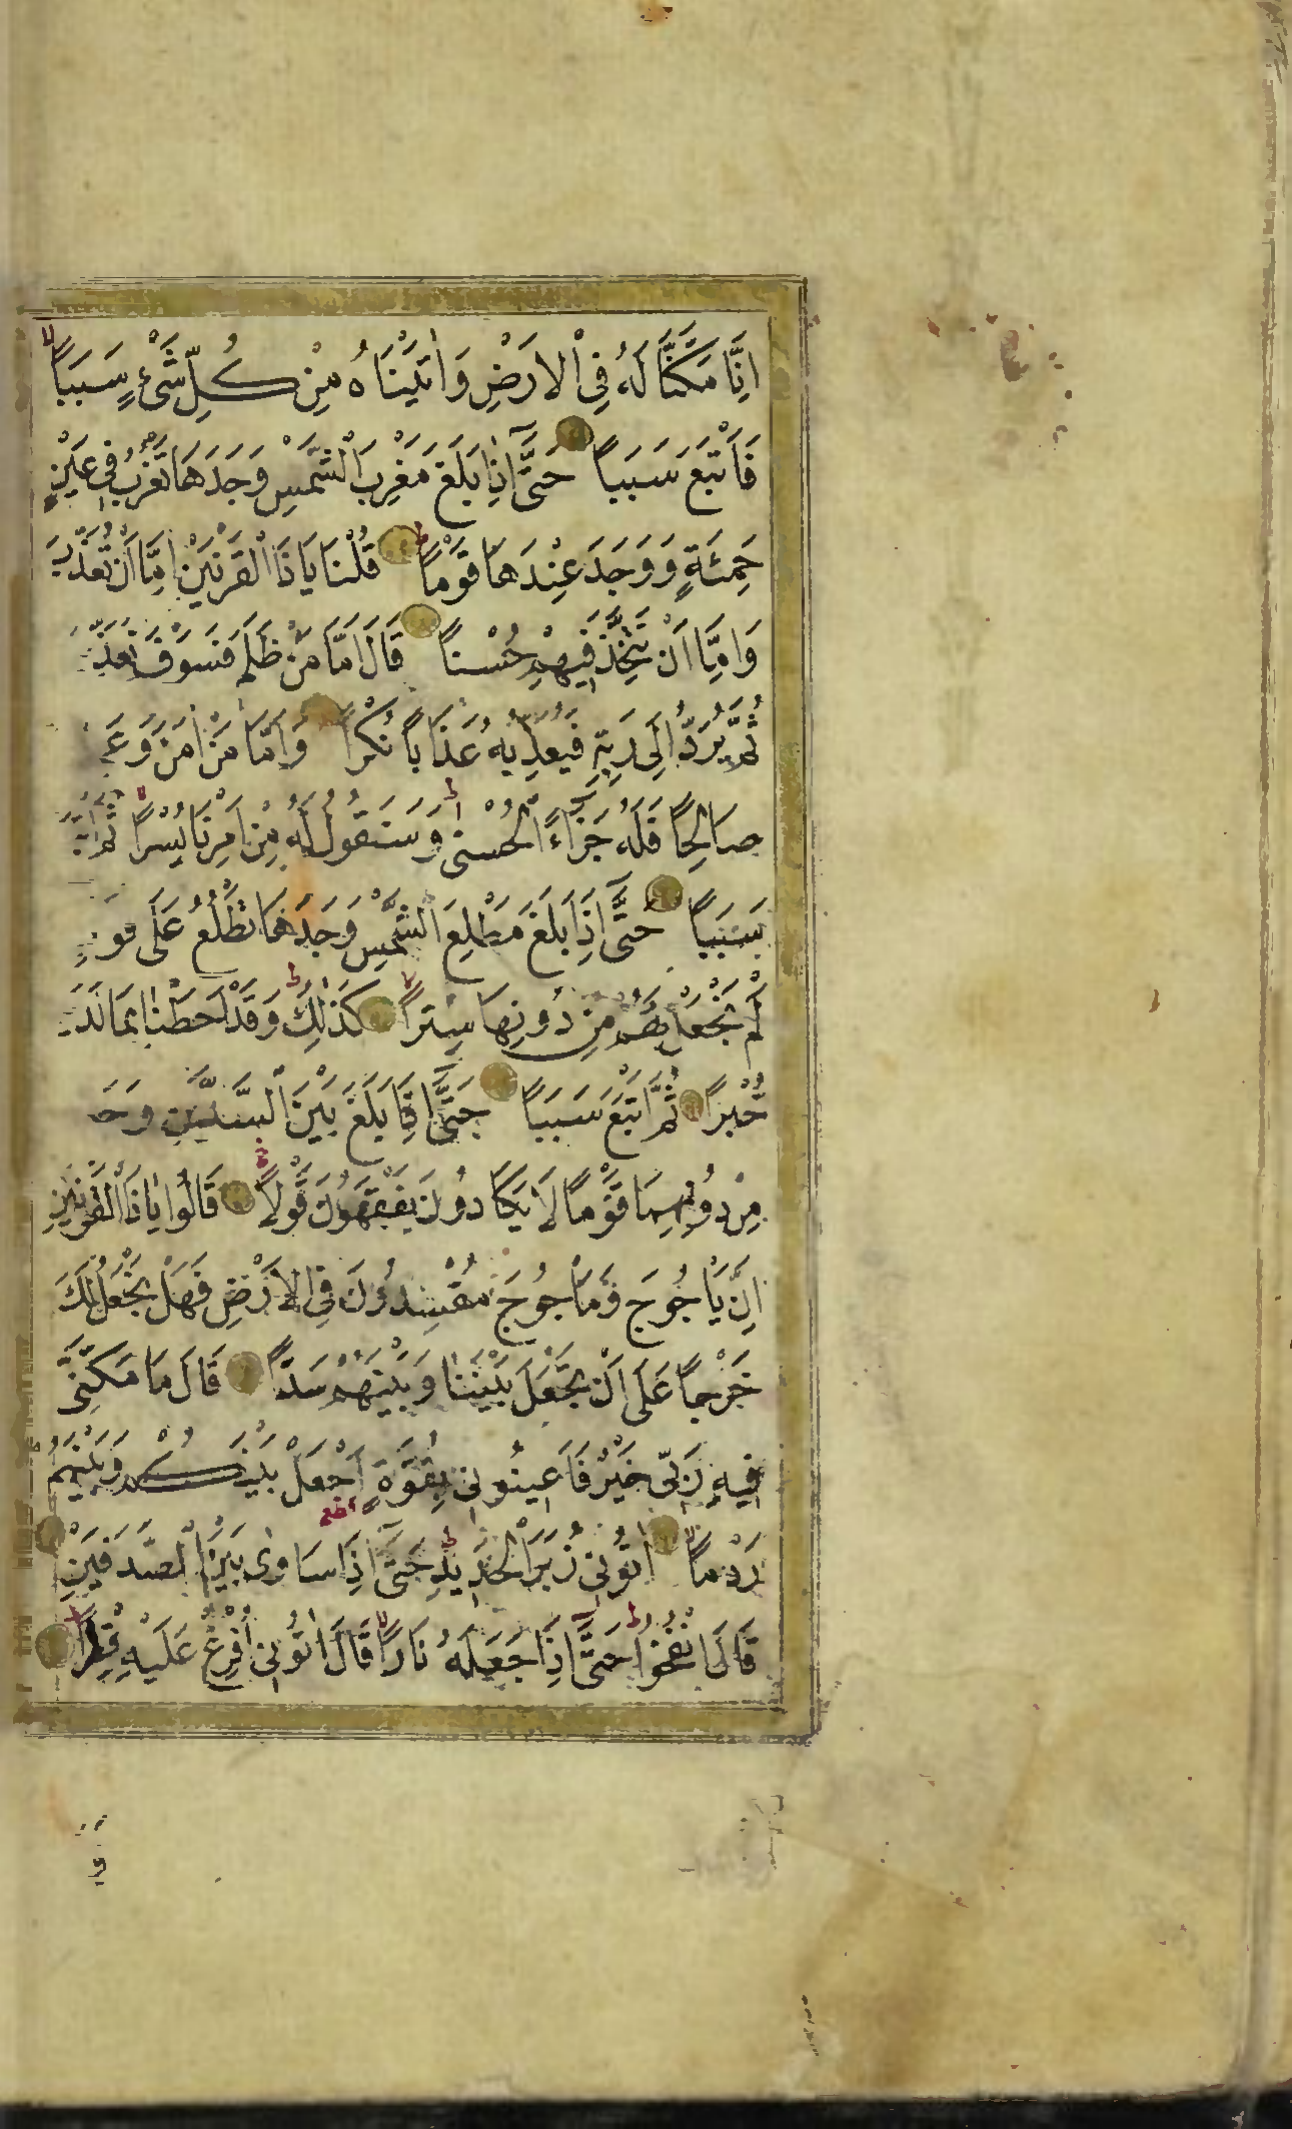 اِنَّا مَكَّنَّا لَهُ فِي الْاَرْضِ وَاٰتَيْنَاهُ مِنْ كُلِّ شَیْءٍ سَبَبًا
فَاَتْبَعَ سَبَبًا حَتَّى اِذَا بَلَغَ مَغْرِبَ الشَّمْسِ وَجَدَهَا تَغْرُبُ فِي عَيْنٍ
حَمِئَةٍ وَوَجَدَ عِنْدَهَا قَوْمًا قُلْنَا يَا ذَا الْقَرْنَيْنِ اِمَّا اَنْ تُعَذِّبَ
وَاِمَّا اَنْ تَتَّخِذَ فِيهِمْ حُسْنًا قَالَ اَمَّا مَنْ ظَلَمَ فَسَوْفَ
ثُمَّ يُرَدُّ اِلَى رَبِّهِ فَيُعَذِّبُهُ عَذَابًا نُكْرًا وَاَمَّا مَنْ اٰمَنَ
صَالِحًا فَلَهُ جَزَاءً الْحُسْنٰى وَسَنَقُولُ لَهُ مِنْ اَمْرِنَا يُسْرًا
سَبَبًا حَتَّى اِذَا بَلَغَ مَطْلِعَ الشَّمْسِ وَجَدَهَا تَطْلُعُ عَلَى
لَمْ نَجْعَلْ لَهُمْ مِنْ دُونِهَا سِتْرًا كَذٰلِكَ وَقَدْ اَحَطْنَا بِمَا
خُبْرًا ثُمَّ اَتْبَعَ سَبَبًا حَتَّى اِذَا بَلَغَ بَيْنَ السَّدَّيْنِ
مِنْ دُونِهِمَا قَوْمًا لَا يَكَادُونَ يَفْقَهُونَ قَوْلًا قَالُوا يَا ذَا الْقَرْنَيْنِ
اِنَّ يَاْجُوجَ وَمَاْجُوجَ مُفْسِدُونَ فِي الْاَرْضِ فَهَلْ نَجْعَلُ لَكَ
خَرْجًا عَلَى اَنْ تَجْعَلَ بَيْنَنَا وَبَيْنَهُمْ سَدًّا قَالَ مَا مَكَّنِّی
فِيهِ رَبِّی خَيْرٌ فَاَعِينُونِی بِقُوَّةٍ اَجْعَلْ بَيْنَكُمْ وَبَيْنَهُمْ
رَدْمًا اٰتُونِی زُبَرَ الْحَدِيدِ حَتَّى اِذَا سَاوٰى بَيْنَ الصَّدَفَيْنِ
قَالَ انْفُخُوا حَتَّى اِذَا جَعَلَهُ نَارًا قَالَ اٰتُونِی اُفْرِغْ عَلَيْهِ قِطْرًا